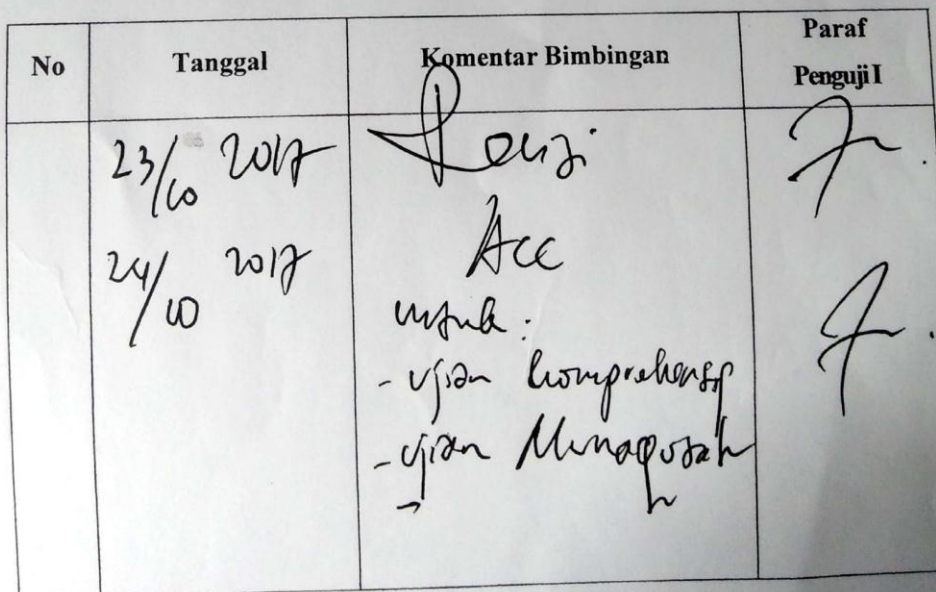 No Tanggal Komentar Bimbingan Paraf
Penguji I
23/10 2017 Revisi
24/10 2017 Acc
untuk:
- ujian komprehensip
- ujian Munaqosah